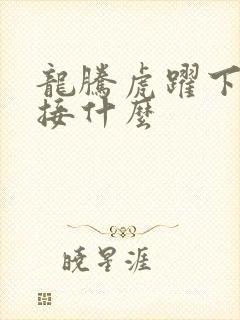 龍騰虎躍下
接什麼
曉星涯